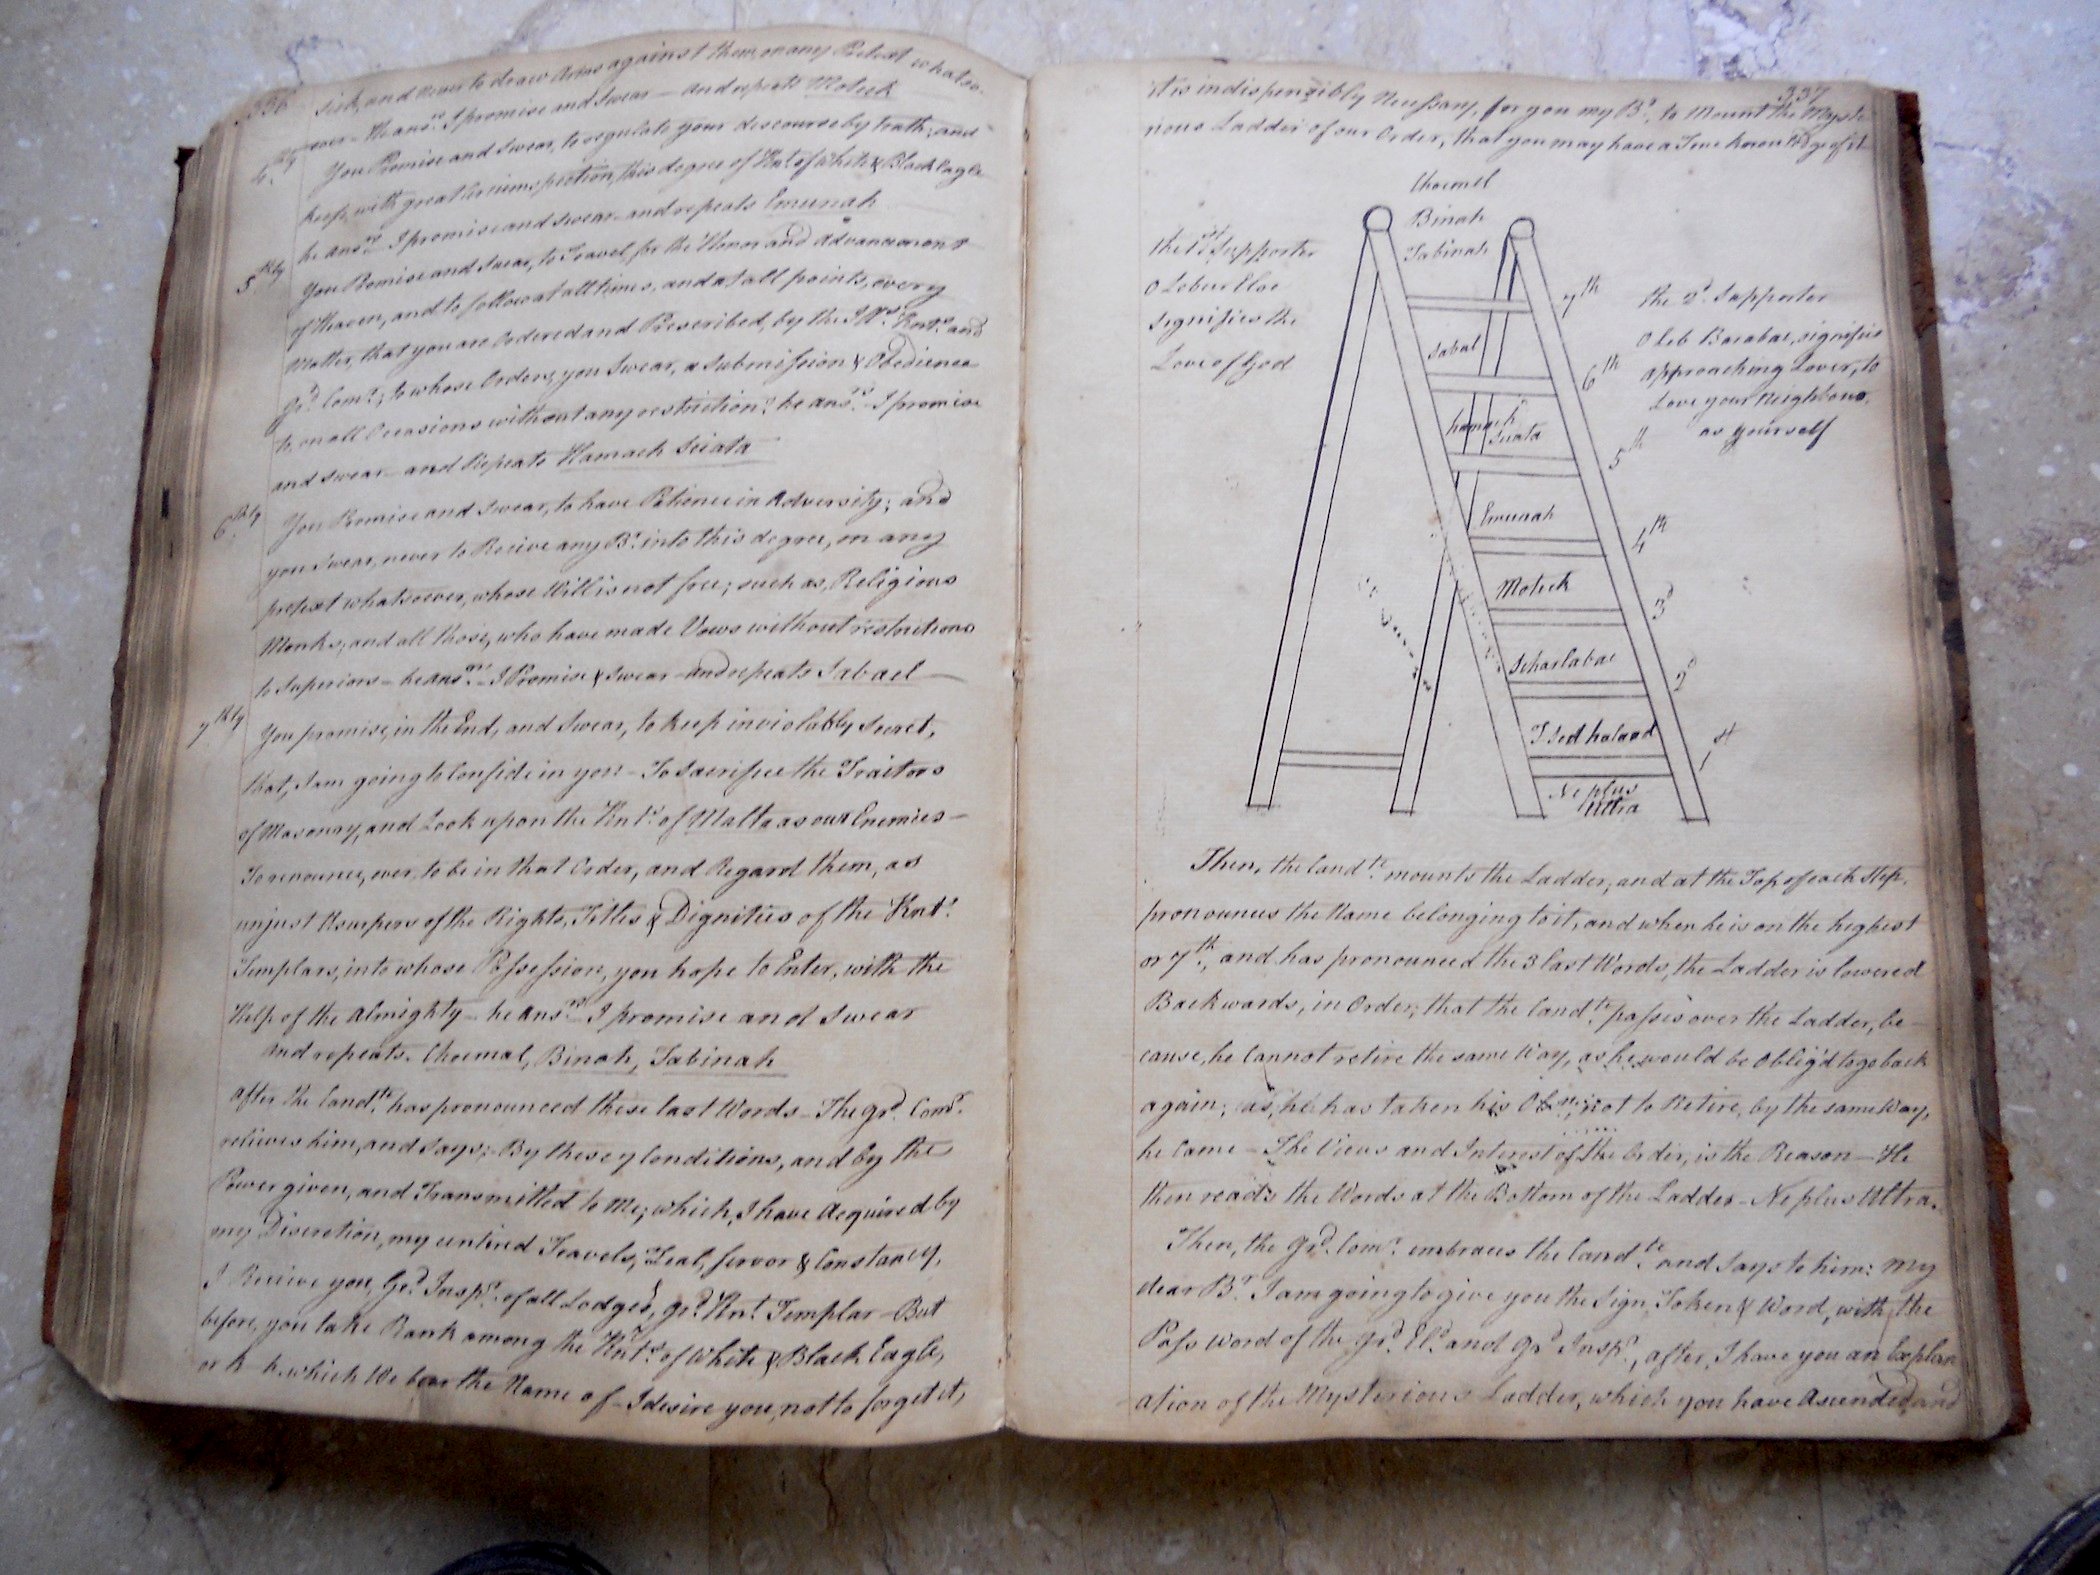 336
sick, and never to draw Arms against them, on any Pretext whatso-
ever - He ansrs. I promise and Swear - and repeats Moteck
4thly You Promise and Swear, to regulate your discourse by truth; and
keep, with great Circumspection, this degree of Knt. of White & Black Eagle
he ansrs. I promise and swear - and repeats Emunah
5thly You Promise and Swear, to Travel for the Honor and Advancement
of Heaven, and to follow at all times, and at all points, every
Matter, that you are Ordered and Prescribed, by the Knts. and
Grd. Comr.; to whose Orders, you Swear, a Submission & Obedience
on all Occasions without any restriction: he ansrs. I promise
and swear - and Repeats Hamach Sciata
6thly You Promise and Swear, to have Patience in Adversity; and
you Swear, never to Recive any Br. into this degree, on any
pretext whatsoever, whose Will is not free; such as, Religious
Monks, and all those, who have made Vows without restrictions
to Superiors - he ansrs. - I Promise & Swear - and repeats Sabael -
7thly You promise, in the End, and Swear, to keep inviolably secret,
that, I am going to Confide in you - To Sacrifice the Traitors
of Masonry, and Look upon the Knts. of Malta as our Enemies -
To renounce, ever, to be in that Order, and Regard them, as
unjust Usurpers of the Rights, Titles & Dignities of the Knts.
Templars, into whose Possession, you hope to Enter, with the
Help of the Almighty - he Ansrs. I promise and swear
and repeats. Choemal, Binah, Tabinah
After the Candte. has pronounced these last Words - The Grd. Comr.
relives him, and Says; - By these 7 Conditions, and by the
Power given, and Transmitted to Me; which, I have Acquired by
my Discretion, my untired Travels, Zeal, fervor & Constancy,
I Receive you, Grd. Inspr. of all Lodges, Grd. Knt. Templar - But
before, you take Rank among the Knts. of White & Black Eagle,
or K-h. which We bear the Name of - I desire you, not to forget it,
337
it is indispensibly Necessary, for you my Br., to Mount the Myste
rious Ladder of our Order, that you may have a True knowledge of it
Choemel
Binah
Tabinah
the 1st Supporter
O Lebur Eloe
signifies the
Love of God
the 2d. Supporter
Oleb Barabae, signifies
approaching Lover, to
Love your Neighbour,
as yourself
7th
Sabal
6th
hamach
Sciata
5th
Emunah
4th
Moteck
3d
Scharlabac
2d
Tsedhakad
1st
Ne plus
Ultra
Then, the Candte. mounts the Ladder, and at the Top of each Step,
pronounces the Name belonging to it, and when he is on the highest
or 7th., and has pronounced the 3 last Words, the Ladder is lowered
Backwards, in Order; that the Candte. passes over the Ladder, be-
cause, he Cannot retire the same Way, as he would be Oblig'd to go back
again; as, he has taken his Obn. not to Retire, by the same Way,
he Came - The Views and Interest of the Order, is the Reason - He
then reads the Words at the Bottom of the Ladder - Ne plus Ultra.
Then, the Grd. Comr. embraces the Candte. and says to him: My
dear Br. I am going to give you the Sign, Token & Word, with the
Pass word of the Grd. Eld. and Grd Inspr., after, I have you an Explan
ation of the Mysterious Ladder, which you have Ascended, and